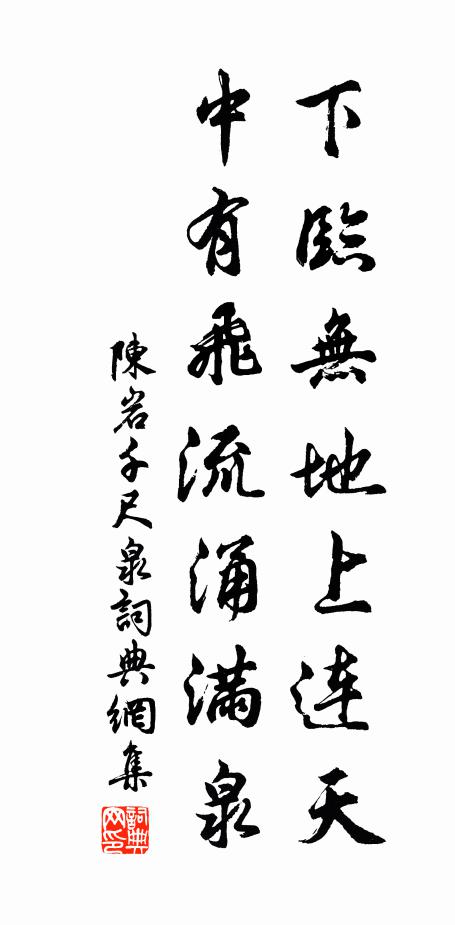 下臨無地上連天
中有飛流涌滿泉
陳岩千尺泉詞典網集
詞典网印